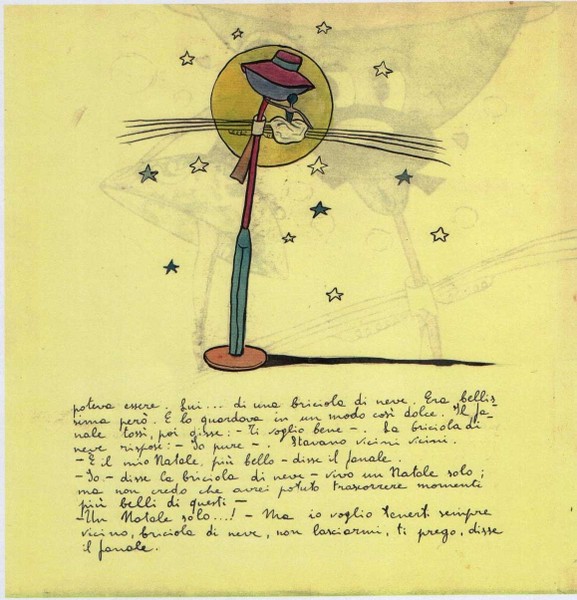 poteva essere. Lui... di una briciola di neve. Era bellis
sima però. E lo guardava in un modo così dolce. Il fa-
nale tossì, poi disse: - Ti voglio bene -. La briciola di
neve rispose: - Io pure -. Stavano vicini vicini.
- È il mio Natale più bello - disse il fanale.
- Io - disse la briciola di neve - vivo un Natale solo;
ma non credo che avrei potuto trascorrere momenti
più belli di questi -
- Un Natale solo...! - Ma io voglio tenerti sempre
vicino, briciola di neve, non lasciarmi, ti prego, disse
il fanale.